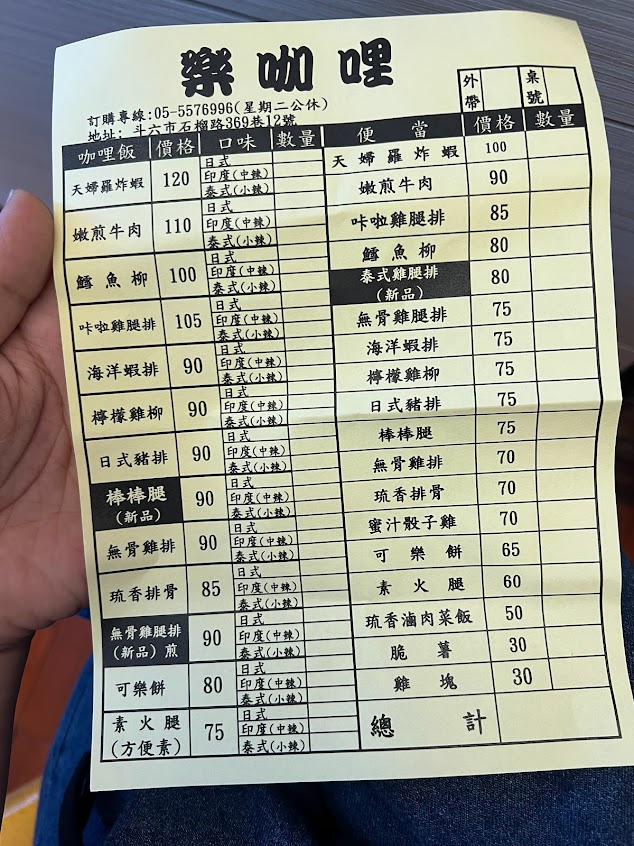 樂咖哩
外帶 桌號
訂購專線:05-5576996(星期二公休)
地址: 斗六市石榴路369巷12號
咖哩飯 價格 口味 數量 便當 價格 數量
天婦羅炸蝦 120 日式 印度(中辣) 泰式(小辣)
嫩煎牛肉 110 日式 印度(中辣) 泰式(小辣)
鱈魚柳 100 日式 印度(中辣) 泰式(小辣)
咔啦雞腿排 105 日式 印度(中辣) 泰式(小辣)
海洋蝦排 90 日式 印度(中辣) 泰式(小辣)
檸檬雞柳 90 日式 印度(中辣) 泰式(小辣)
日式豬排 90 日式 印度(中辣) 泰式(小辣)
棒棒腿(新品) 90 日式 印度(中辣) 泰式(小辣)
無骨雞排 90 日式 印度(中辣) 泰式(小辣)
琉香排骨 85 日式 印度(中辣) 泰式(小辣)
無骨雞腿排(新品)煎 90 日式 印度(中辣) 泰式(小辣)
可樂餅 80 日式 印度(中辣) 泰式(小辣)
素火腿(方便素) 75 日式 印度(中辣) 泰式(小辣)
天婦羅炸蝦 100
嫩煎牛肉 90
咔啦雞腿排 85
鱈魚柳 80
泰式雞腿排(新品) 80
無骨雞腿排 75
海洋蝦排 75
檸檬雞柳 75
日式豬排 75
棒棒腿 75
無骨雞排 70
琉香排骨 70
蜜汁骰子雞 70
可樂餅 65
素火腿 60
琉香滷肉菜飯 50
脆薯 30
雞塊 30
總計